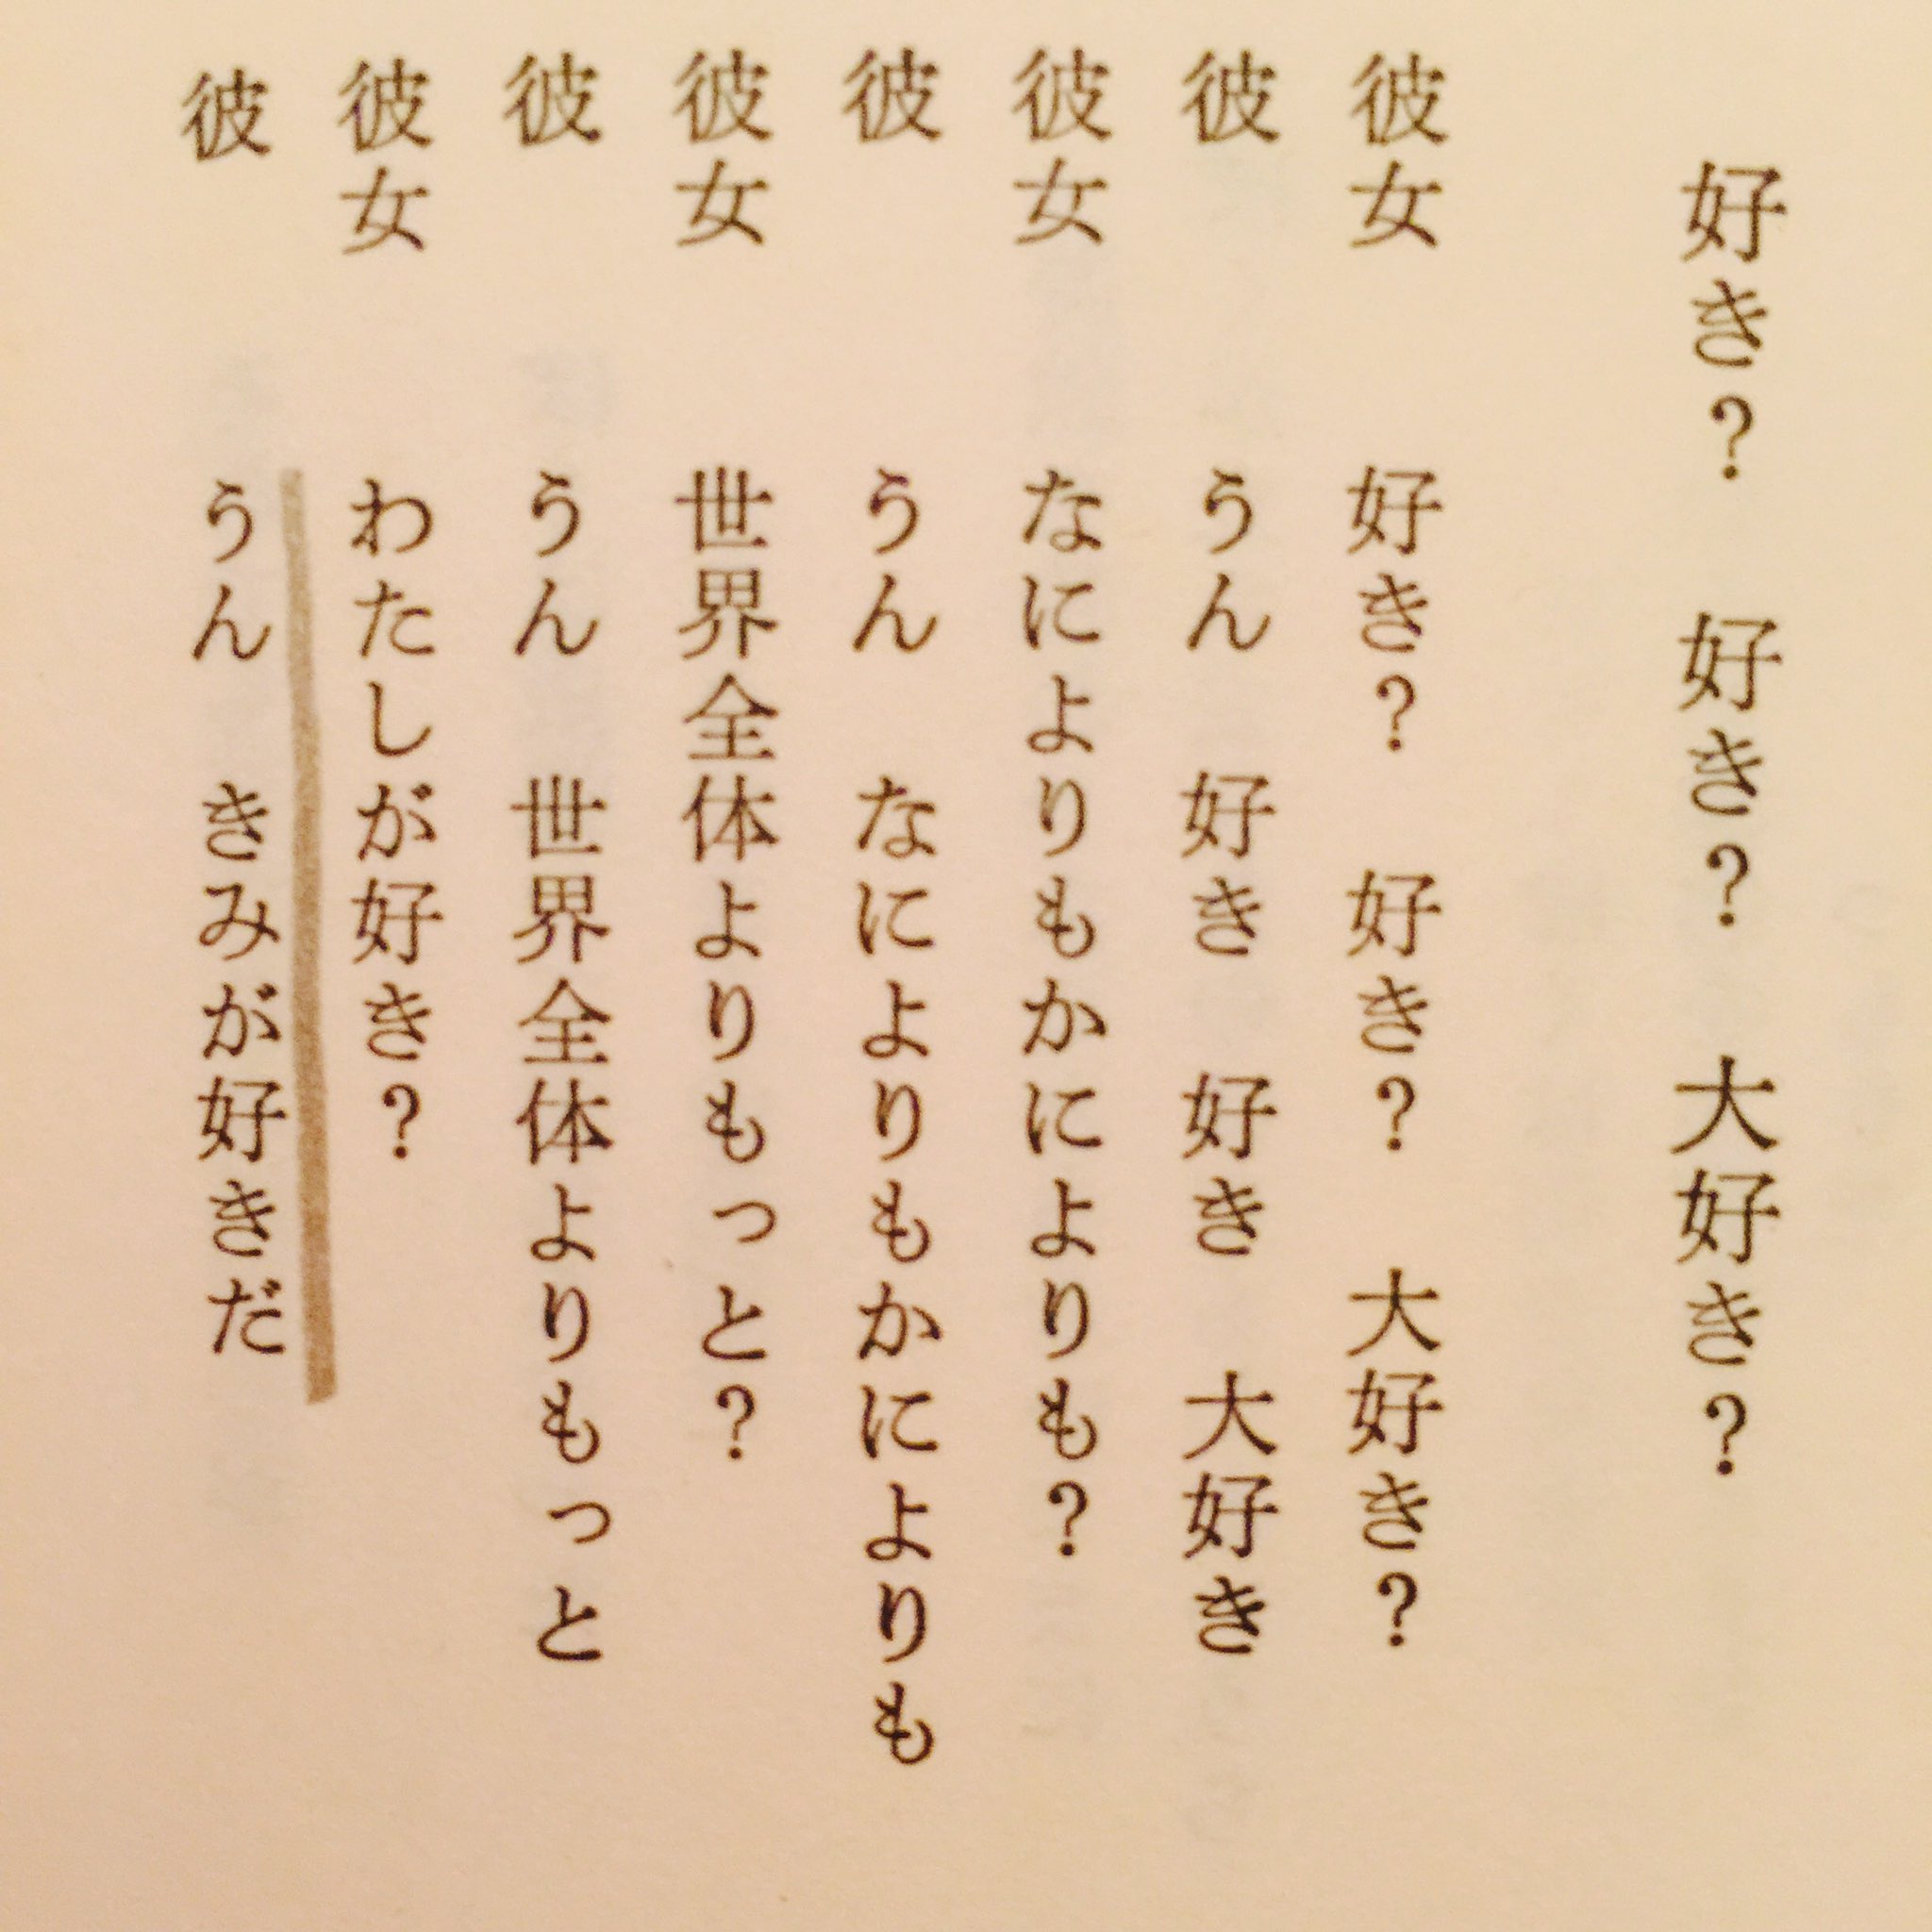 好き？　好き？　大好き？
彼女　　好き？　好き？　大好き？
彼　　　うん　好き　好き　大好き
彼女　　なによりもかによりも？
彼　　　うん　なによりもかによりも
彼女　　世界全体よりもっと？
彼　　　うん　世界全体よりもっと
彼女　　わたしが好き？
彼　　　うん　きみが好きだ